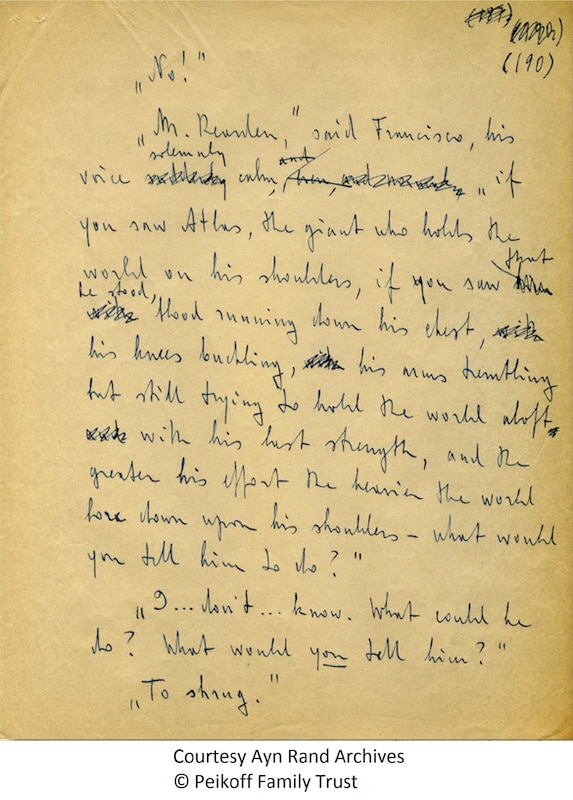 (190)
„No!"
„Mr. Rearden," said Francisco, his
solemnly and
voice calm, „if
you saw Atlas, the giant who holds the
world on his shoulders, if you saw that
he stood,
blood running down his chest,
his knees buckling, his arms trembling
but still trying to hold the world aloft
with his last strength, and the
greater his effort the heavier the world
bore down upon his shoulders – what would
you tell him to do?"
„I...don't...know. What could he
do? What would you tell him?"
„To shrug."
Courtesy Ayn Rand Archives
© Peikoff Family Trust